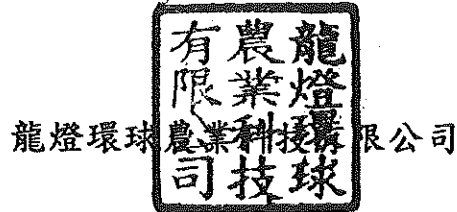 龍燈環球農業科技有限公司
龍燈環球
農業科技
有限公司